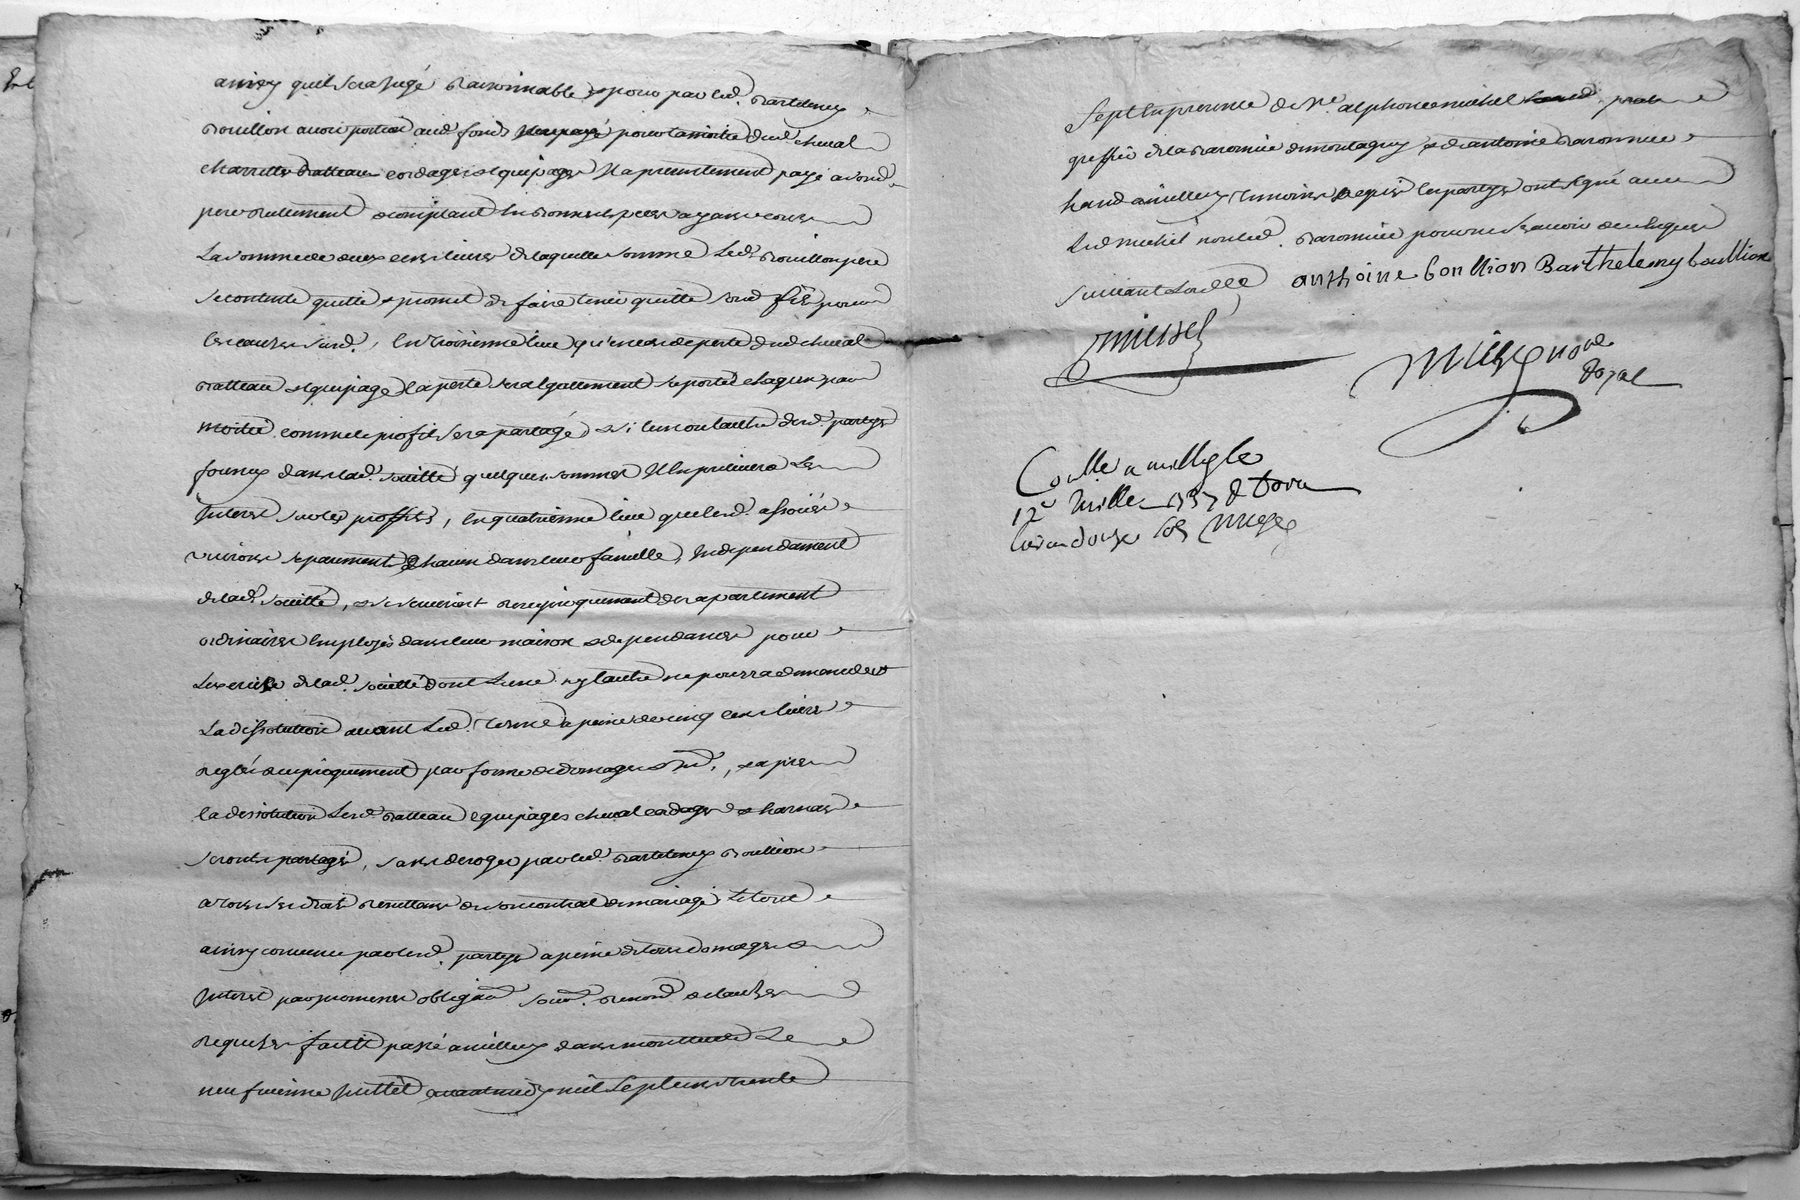 ainsy quil sera jugé raisonnable, pour par led. Bartelemy
Bouillon avoir portion aud. fonds pour la moitié dud. cheval
charrette batteau cordages equipages Il a presentement payé a sond.
pere reellement comptant en bonnes especes ayant cours
La somme de deux cens livres de laquelle somme led. Bouillon pere
se contente quitte & promet de faire tenir quitte sond. fils pour
les causes susd., En troisieme lieu qu'en cas de perte dud. cheval
batteau equipage la perte sera egallement suportée chaqun par
moitié comme le profit sera partagé & si lun ou lautre desd. partyes
fournit dans lad. societté quelques sommes Il en prelevera les
Interest sur les proffits, En quatrieme lieu que lesd. associés
vivront separement chacun dans leur famille, Independament
de lad. societté, & se serviront reciproquement des apartement
ordinaires employés dans leur maison & dependances pour
Lexercice de lad. societté dont Lune ny lautre ne pourra demander
La dissolution avant led. terme a peine de cinq cens livres
reglés reciproquement par forme de domages & Int., & apres
la dissolution Lesd. batteau equipages cheval cordages & harnas
seront partagé, sans deroger par led. Bartelemy Bouillon
a tous ses droits resultans de son contrat de mariage, Le tout
ainsy convenu par lesd. partyes a peine de tous domages &
Interest par promesses obligaõns soum. renond. & clauses
requises faitte passé a millery dans mon etude Le
neufvieme Juillet avant midy mil sept cens trente
sept En presence de Me. alphonce michel
greffier de la Baronnie de montagny & de antoine Baronnier
hand. a millery temoins requis les partyes ont signé avec
led. michel non led. Baronnier pour ne scavoir de ce Requis
suivant Lord.ce anthoine boullion Barthelemy boullion
michel
notre
Royal
Con.lle a millery le
12e Juillet 1737 R
livre douze sols